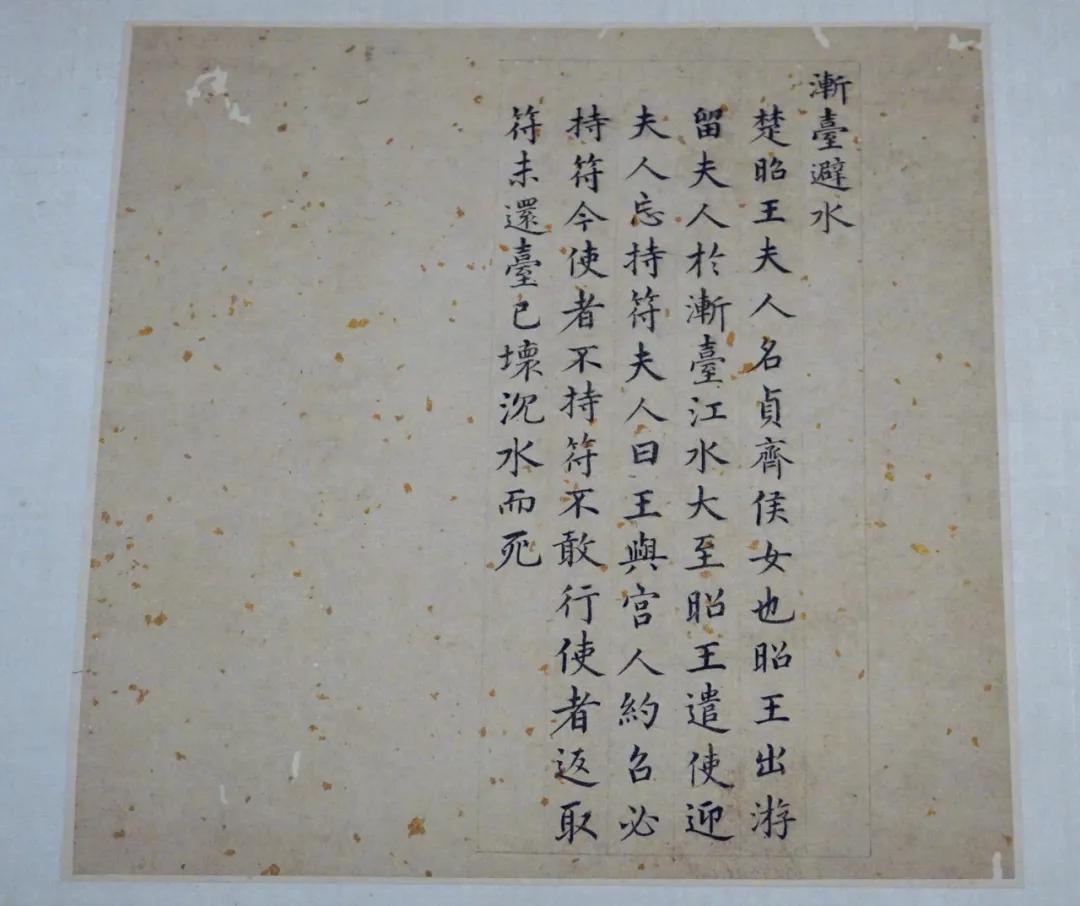 漸臺避水
楚昭王夫人名貞齊侯女也昭王出游
留夫人於漸臺江水大至昭王遣使迎
夫人忘持符夫人曰王與宮人約召必
持符今使者不持符不敢行使者返取
符未還臺已壞沉水而死